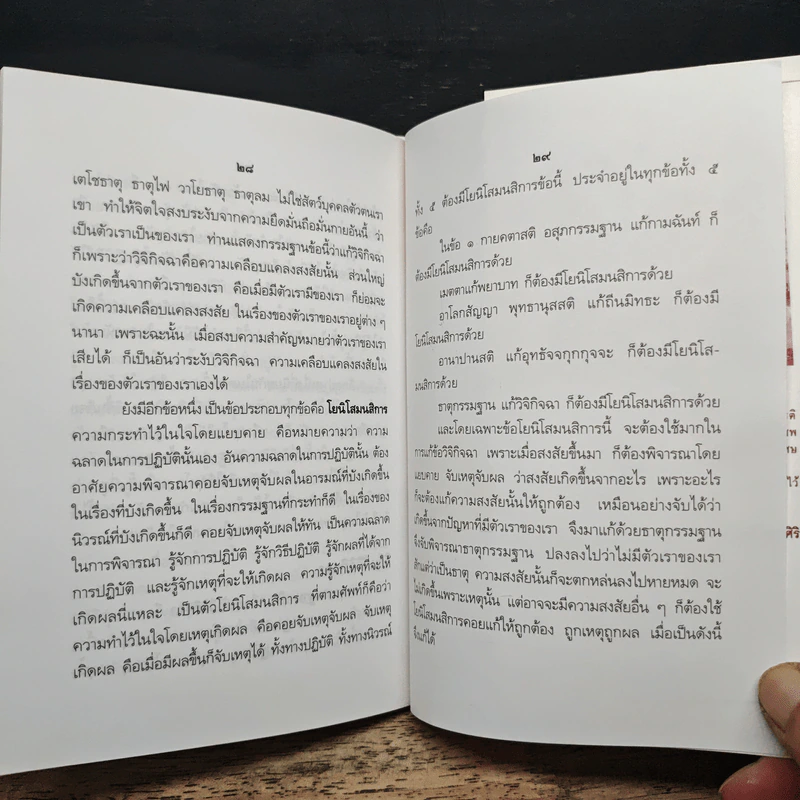 ๒๘
เตโชธาตุ ธาตุไฟ วาโยธาตุ ธาตุลม ไม่ใช่สัตว์บุคคลตัวตนเรา
เขา ทำให้จิตใจสงบระงับจากความยึดมั่นถือมั่นกายอันนี้ ว่า
เป็นตัวเราเป็นของเรา ท่านแสดงกรรมฐานข้อนี้ว่าแก้วิจิกิจฉา
ก็เพราะว่าวิจิกิจฉาคือความเคลือบแคลงสงสัยนั้น ส่วนใหญ่
บังเกิดขึ้นจากตัวเราของเรา คือเมื่อมีตัวเรามีของเรา ก็ย่อมจะ
เกิดความเคลือบแคลงสงสัย ในเรื่องของตัวเราของเราอยู่ต่าง ๆ
นานา เพราะฉะนั้น เมื่อสงบความสำคัญหมายว่าตัวเราของเรา
เสียได้ ก็เป็นอันว่าระงับวิจิกิจฉา ความเคลือบแคลงสงสัยใน
เรื่องของตัวเราของเราเองได้
ยังมีอีกข้อหนึ่ง เป็นข้อประกอบทุกข้อคือ โยนิโสมนสิการ
ความกระทำไว้ในใจโดยแยบคาย คือหมายความว่า ความ
ฉลาดในการปฏิบัตินั้นเอง อันความฉลาดในการปฏิบัตินั้น ต้อง
อาศัยความพิจารณาคอยจับเหตุจับผลในอารมณ์ที่บังเกิดขึ้น
ในเรื่องที่บังเกิดขึ้น ในเรื่องกรรมฐานที่กระทำก็ดี ในเรื่องของ
นิวรณ์ที่บังเกิดขึ้นก็ดี คอยจับเหตุจับผลให้ทัน เป็นความฉลาด
ในการพิจารณา รู้จักการปฏิบัติ รู้จักวิธีปฏิบัติ รู้จักผลที่ได้จาก
การปฏิบัติ และรู้จักเหตุที่จะให้เกิดผล ความรู้จักเหตุที่จะให้
เกิดผลนี่แหละ เป็นตัวโยนิโสมนสิการ ที่ตามศัพท์ก็คือว่า
ความทำไว้ในใจโดยเหตุเกิดผล คือคอยจับเหตุจับผล จับเหตุ
เกิดผล คือเมื่อมีผลขึ้นก็จับเหตุได้ ทั้งทางปฏิบัติ ทั้งทางนิวรณ์
๒๙
ทั้ง ๕ ต้องมีโยนิโสมนสิการข้อนี้ ประจำอยู่ในทุกข้อทั้ง ๕
ข้อคือ
ในข้อ ๑ กายคตาสติ อสุภกรรมฐาน แก้กามฉันท์ ก็
ต้องมีโยนิโสมนสิการด้วย
เมตตาแก้พยาบาท ก็ต้องมีโยนิโสมนสิการด้วย
อาโลกสัญญา พุทธานุสสติ แก้ถีนมิทธะ ก็ต้องมี
โยนิโสมนสิการด้วย
อานาปานสติ แก้อุทธัจจกุกกุจจะ ก็ต้องมีโยนิโส-
มนสิการด้วย
ธาตุกรรมฐาน แก้วิจิกิจฉา ก็ต้องมีโยนิโสมนสิการด้วย
และโดยเฉพาะข้อโยนิโสมนสิการนี้ จะต้องใช้มากใน
การแก้ข้อวิจิกิจฉา เพราะเมื่อสงสัยขึ้นมา ก็ต้องพิจารณาโดย
แยบคาย จับเหตุจับผล ว่าสงสัยเกิดขึ้นจากอะไร เพราะอะไร
ก็จะต้องแก้ความสงสัยนั้นให้ถูกต้อง เหมือนอย่างจับได้ว่า
เกิดขึ้นจากปัญหาที่มีตัวเราของเรา จึงมาแก้ด้วยธาตุกรรมฐาน
จึงจับพิจารณาธาตุกรรมฐาน ปลงลงไปว่าไม่มีตัวเราของเรา
สักแต่ว่าเป็นธาตุ ความสงสัยนั้นก็จะตกหล่นลงไปหายหมด จะ
ไม่เกิดขึ้นเพราะเหตุนั้น แต่อาจจะมีความสงสัยอื่น ๆ ก็ต้องใช้
โยนิโสมนสิการคอยแก้ให้ถูกต้อง ถูกเหตุถูกผล เมื่อเป็นดังนี้
จึงแก้ได้